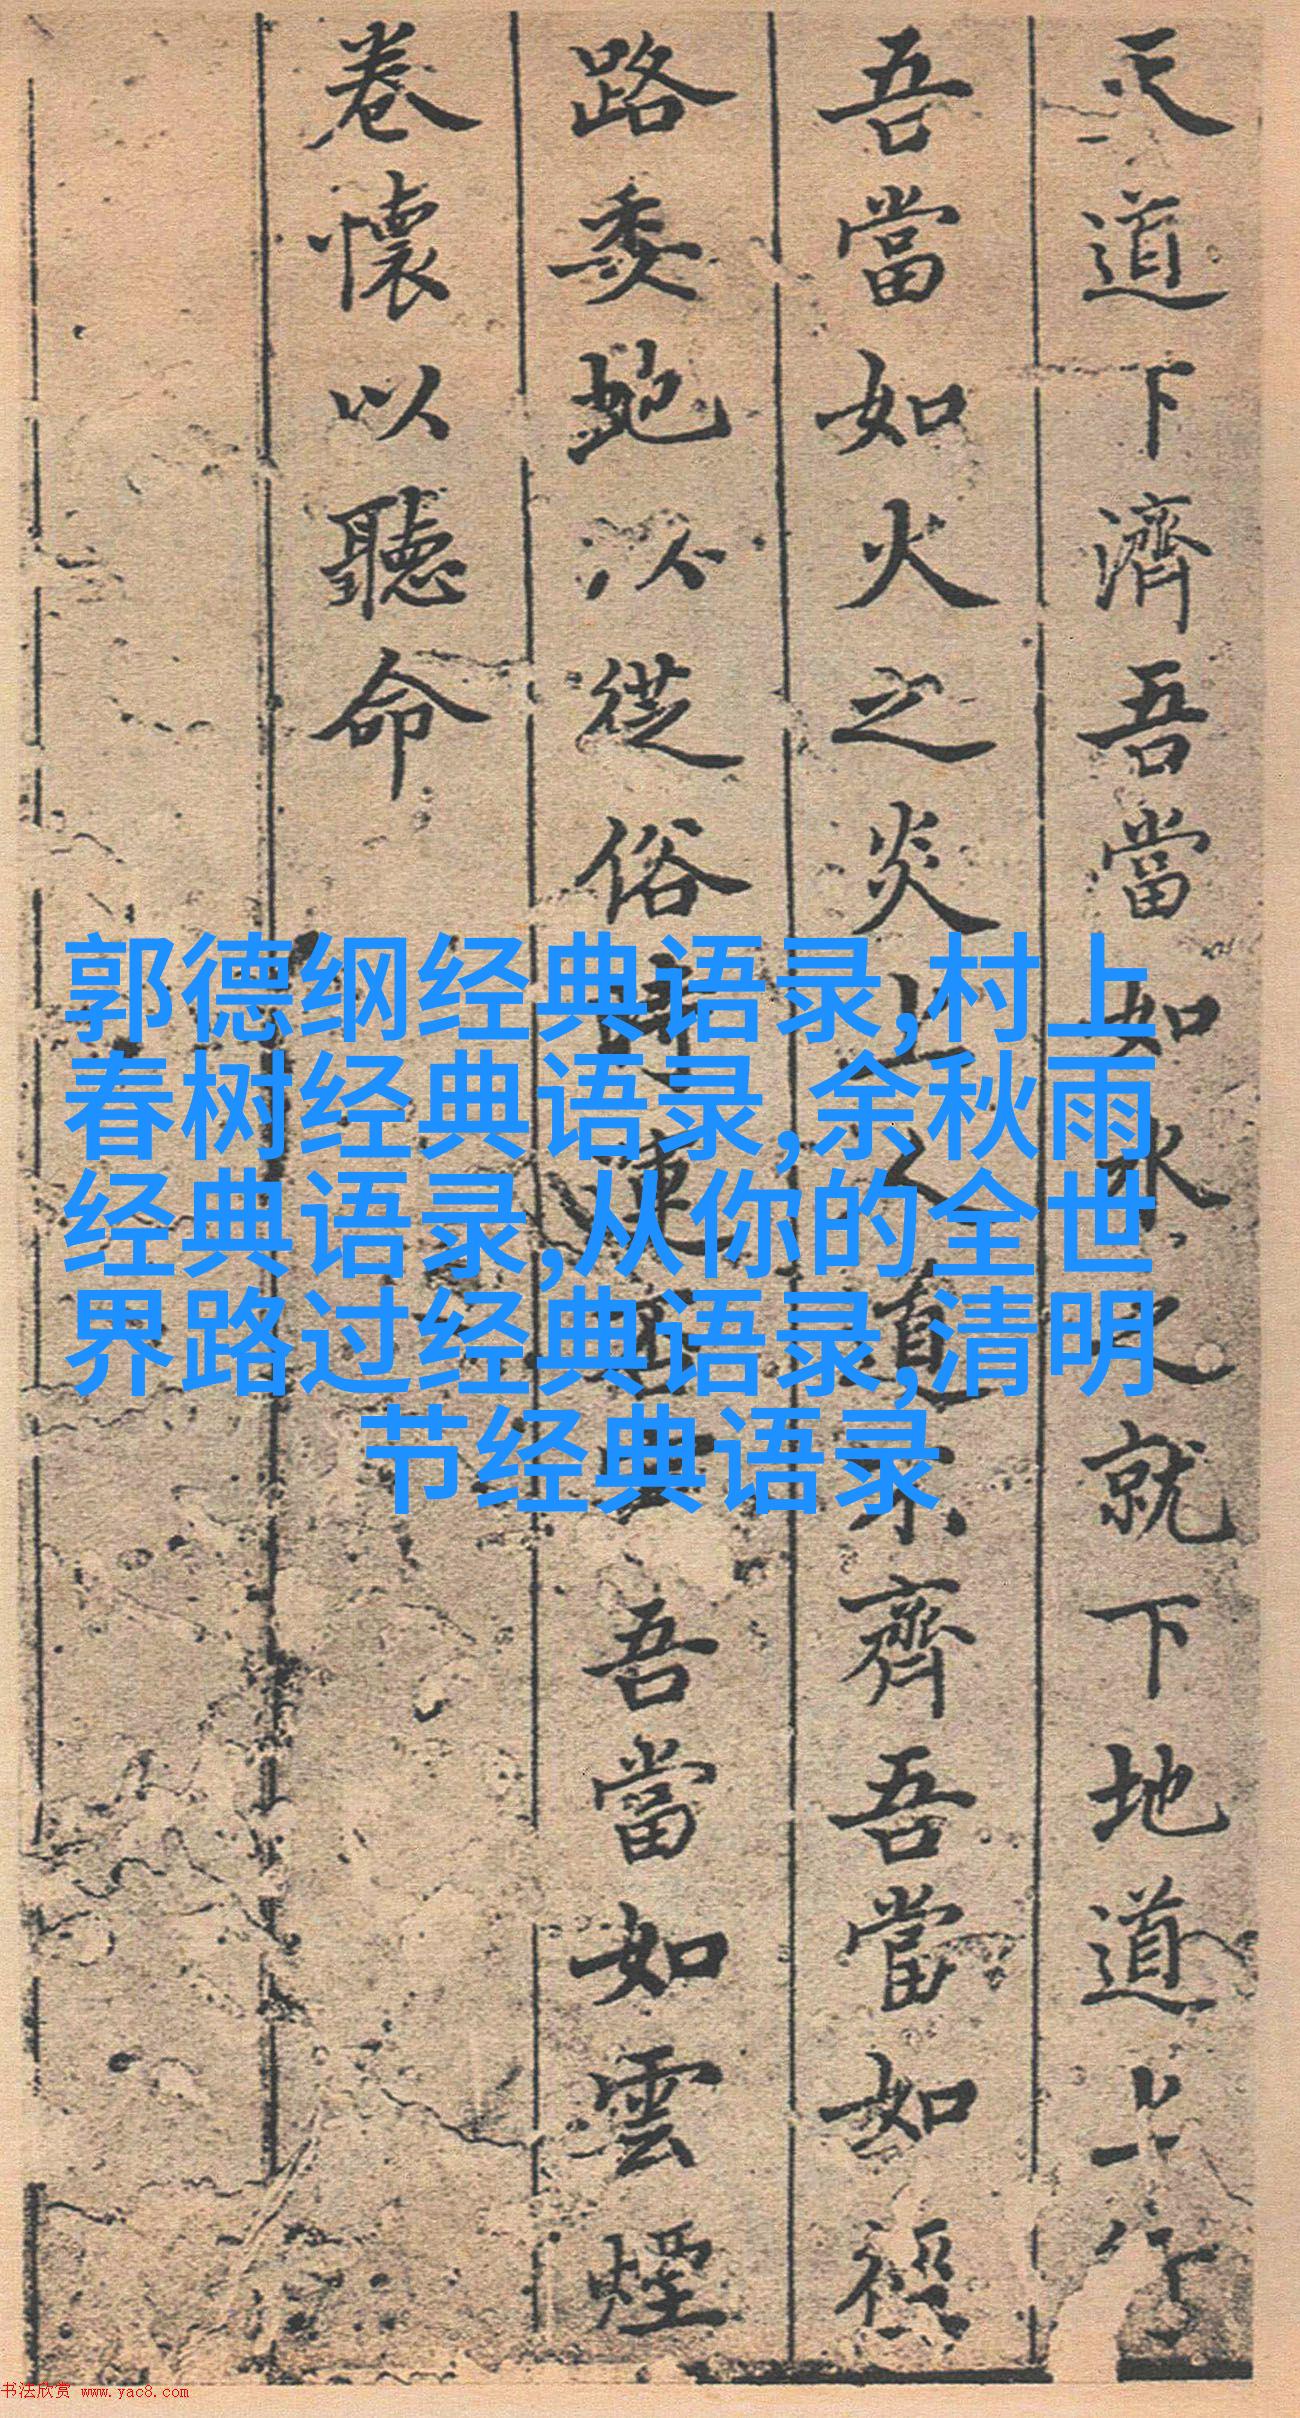 天道下濟吾當如水之就下地道上行
吾當如火之炎上人道不齊吾當如
路委虵以從俗 吾當如雲煙
卷懷以聽命
郭德纲经典语录,村上
春树经典语录,余秋雨
经典语录,从你的全世
界路过经典语录,清明
节经典语录
书法欣赏 www.yac8.com